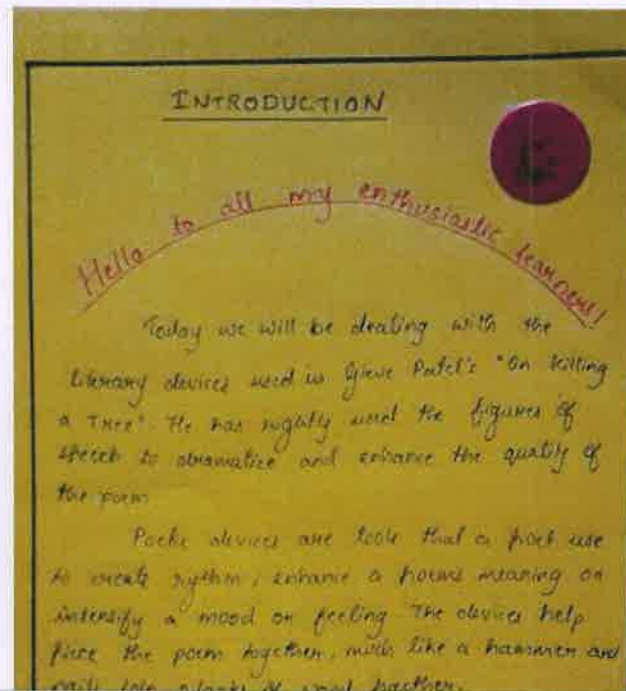 INTRODUCTION
Hello to all my enthusiastic learners!
Today we will be dealing with the
literary devices used in Gieve Patel's "On Killing
a Tree". He has rightly used the figures of
speech to dramatice and enhance the quality of
the poem
Poetic devices are tools that a poet use
to create rythm, enhance a poems meaning or
intensify a mood or feeling. The devices help
piece the poem together, much like a hammer and
nails join planks of wood together.